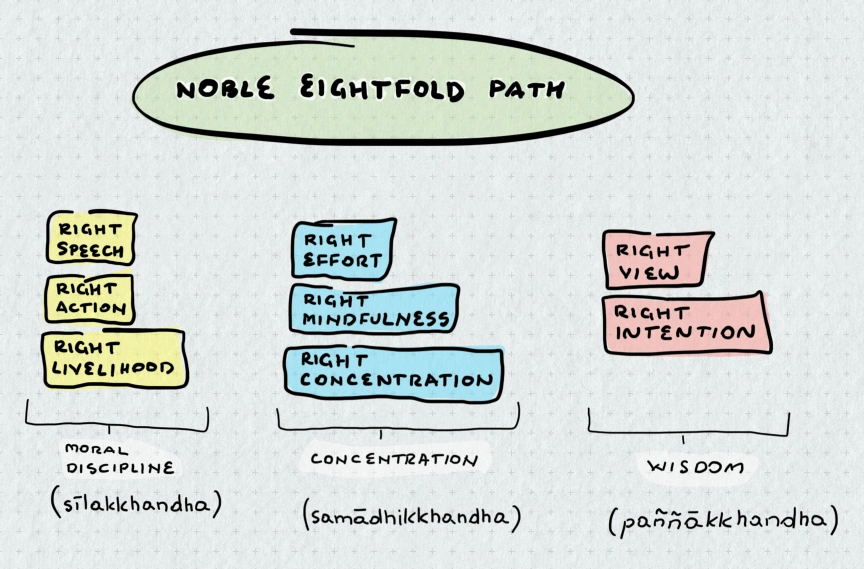 NOBLE EIGHTFOLD PATH
RIGHT
SPEECH
RIGHT
ACTION
RIGHT
LIVELIHOOD
MORAL
DISCIPLINE
(sīlakkhandha)
RIGHT
EFFORT
RIGHT
MINDFULNESS
RIGHT
CONCENTRATION
CONCENTRATION
(samādhikkhandha)
RIGHT
VIEW
RIGHT
INTENTION
WISDOM
(paññākkhandha)